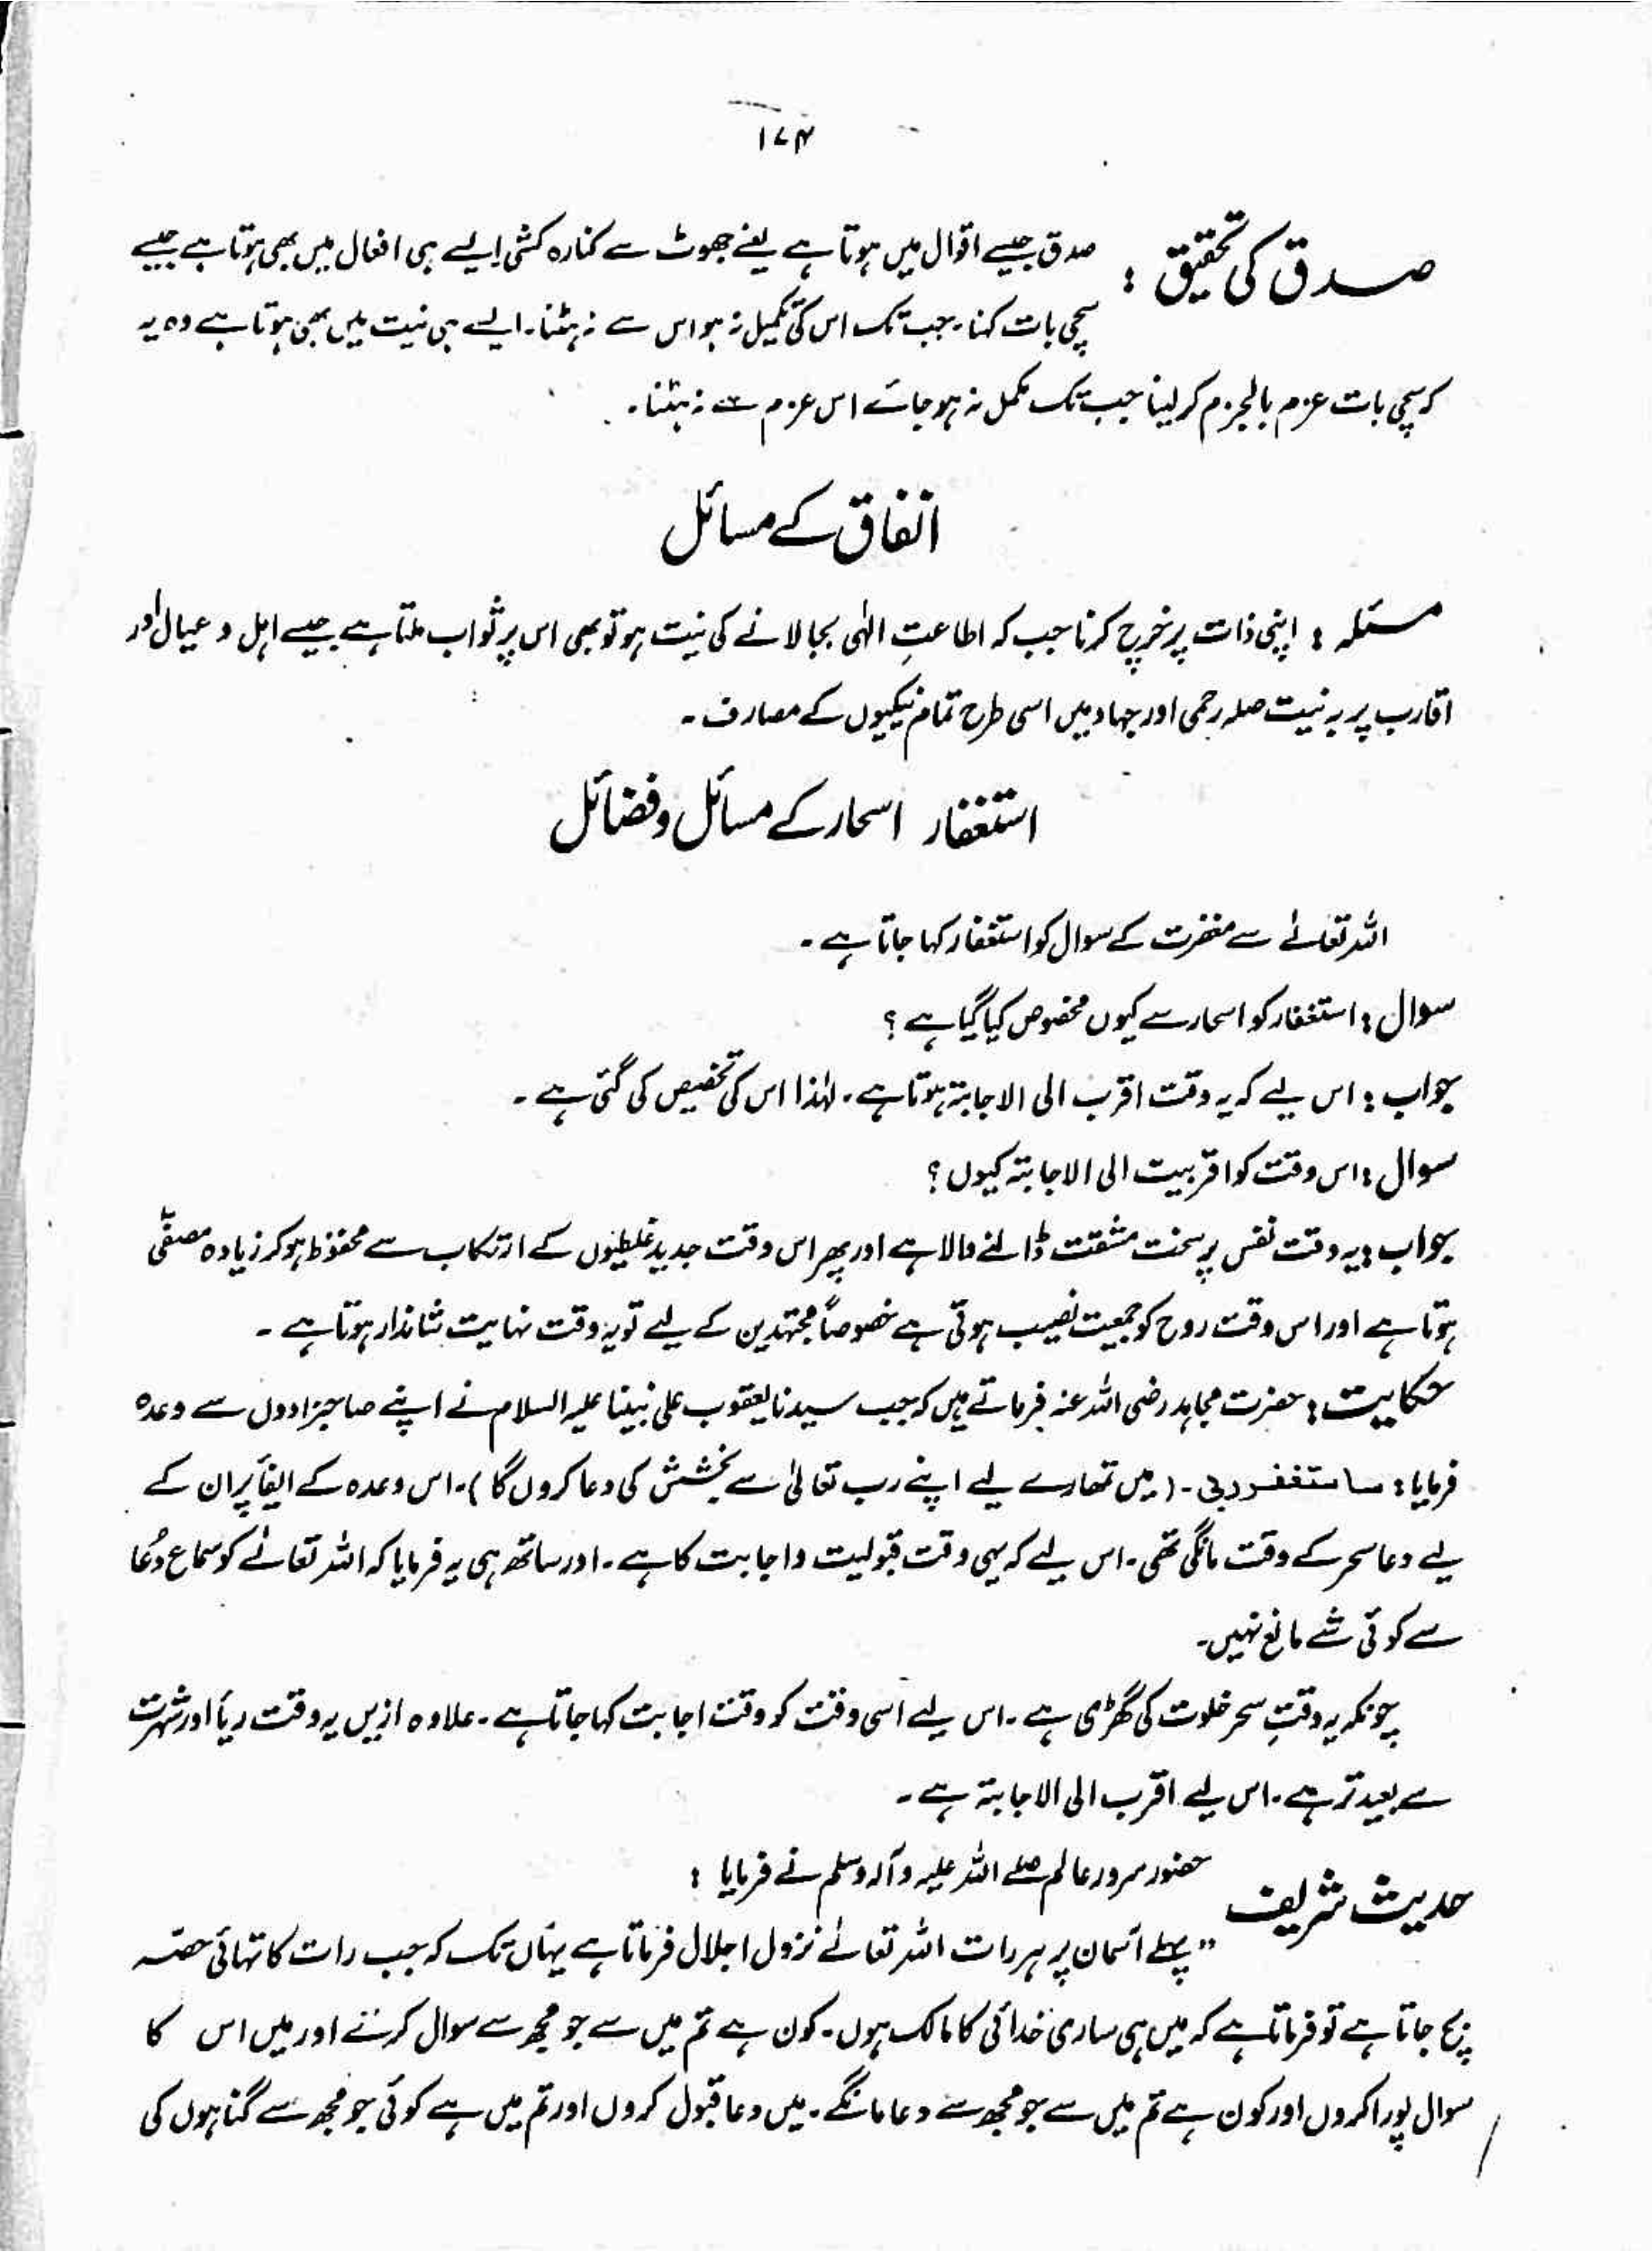 ۱۷۴
صدق کی تحقیق : صدق جیسے اقوال میں ہوتا ہے یعنے جھوٹ سے کنارہ کشی ایسے ہی افعال میں بھی ہوتا ہے جیسے
سچی بات کہنا۔ جب تک اس کی تکمیل نہ ہو اس سے نہ ہٹنا۔ ایسے ہی نیت میں بھی ہوتا ہے وہ یہ
کہ سچی بات عزم بالجزم کر لینا جب تک مکمل نہ ہو جائے اس عزم سے نہ ہٹنا۔
انفاق کے مسائل
مسئلہ : اپنی ذات پر خرچ کرنا جب کہ اطاعتِ الٰہی بجا لانے کی نیت ہو تو بھی اس پر ثواب ملتا ہے جیسے اہل و عیال اور
اقارب پر بہ نیت صلہ رحمی اور جہاد میں اسی طرح تمام نیکیوں کے مصارف۔
استغفار اسحار کے مسائل و فضائل
اللہ تعالےٰ سے مغفرت کے سوال کو استغفار کہا جاتا ہے۔
سوال : استغفار کو اسحار سے کیوں مخصوص کیا گیا ہے ؟
جواب : اس لیے کہ یہ وقت اقرب الی الاجابۃ ہوتا ہے۔ لہٰذا اس کی تخصیص کی گئی ہے۔
سوال : اس وقت کو اقربیت الی الاجابۃ کیوں ؟
جواب : یہ وقت نفس پر سخت مشقت ڈالنے والا ہے اور پھر اس وقت جدید غلطیوں کے ارتکاب سے محفوظ ہو کر زیادہ مصفّٰی
ہوتا ہے اور اس وقت روح کو جمعیت نصیب ہوتی ہے خصوصاً مجتہدین کے لیے تو یہ وقت نہایت شاندار ہوتا ہے۔
حکایت : حضرت مجاہد رضی اللہ عنہ فرماتے ہیں کہ جب سیدنا یعقوب علی نبینا علیہ السلام نے اپنے صاحبزادوں سے وعدہ
فرمایا : ساستغفر ربی۔ (میں تمھارے لیے اپنے رب تعالیٰ سے بخشش کی دعا کروں گا)۔ اس وعدہ کے ایفأ پر ان کے
لیے دعا سحر کے وقت مانگی تھی۔ اس لیے کہ یہی وقت قبولیت و اجابت کا ہے۔ اور ساتھ ہی یہ فرمایا کہ اللہ تعالےٰ کو سماع دُعا
سے کوئی شے مانع نہیں۔
چونکہ یہ وقتِ سحر خلوت کی گھڑی ہے۔ اس لیے اسی وقت کو وقت اجابت کہا جاتا ہے۔ علاوہ ازیں یہ وقت ریأ اور شہرت
سے بعید تر ہے۔ اس لیے اقرب الی الاجابۃ ہے۔
حدیث شریف حضور سرور عالم صلے اللہ علیہ و آلہ وسلم نے فرمایا :
" پہلے آسمان پر ہر رات اللہ تعالےٰ نزول اجلال فرماتا ہے یہاں تک کہ جب رات کا تہائی حصّہ
بچ جاتا ہے تو فرماتا ہے کہ میں ہی ساری خدائی کا مالک ہوں۔ کون ہے تم میں سے جو مجھ سے سوال کرے اور میں اس کا
سوال پورا کروں اور کون ہے تم میں سے جو مجھ سے دعا مانگے۔ میں دعا قبول کروں اور تم میں ہے کوئی جو مجھ سے گناہوں کی